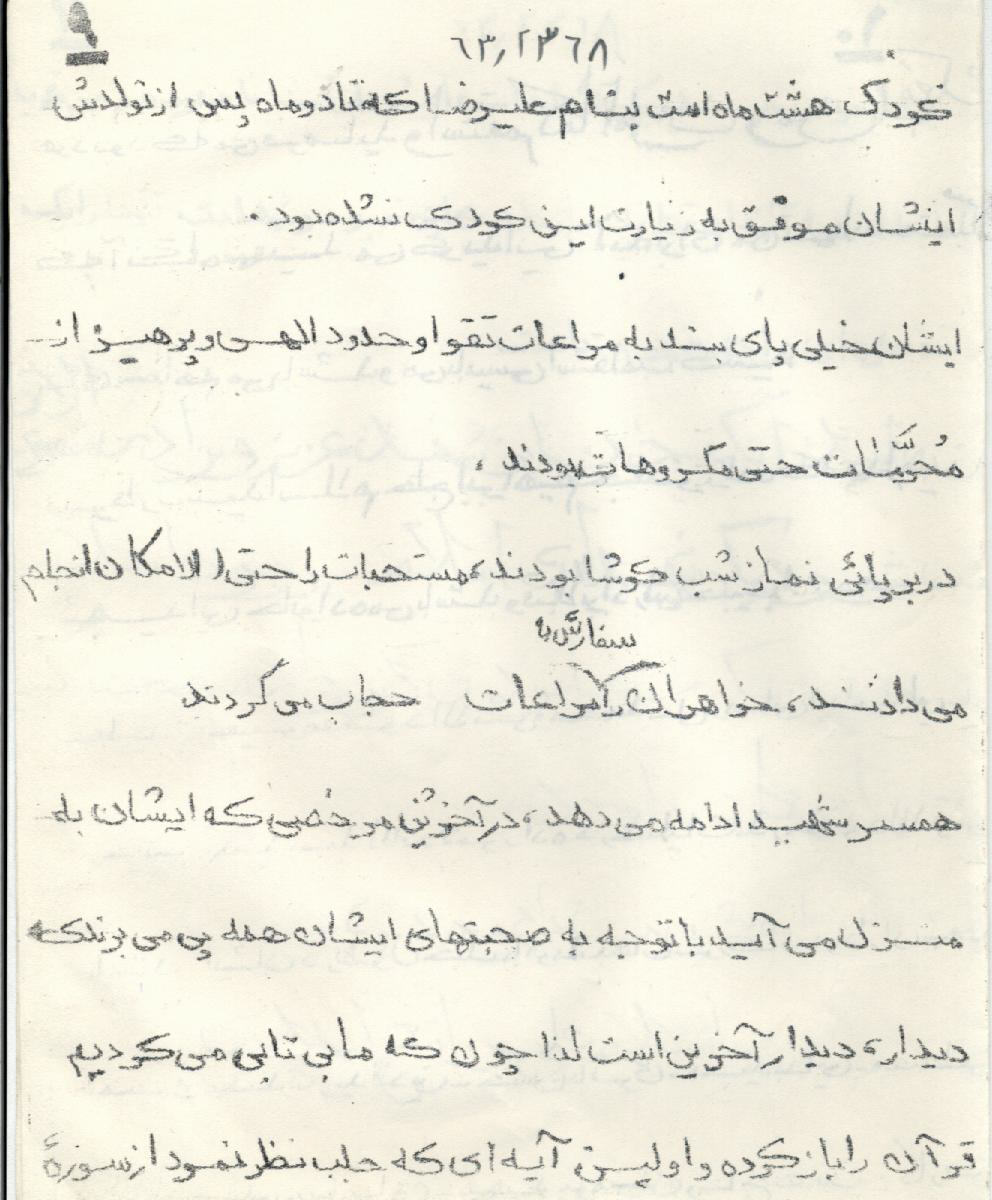 ۶۳٫۲۳۶۸
۹
کودک هشت ماه است بنام علیرضا که تا دو ماه پس از تولدش
ایشان موفق به زیارت این کودک نشده بود.
ایشان خیلی پای بند به مراعات تقوا و حدود الهی و پرهیز از
مُحَرَّمات حتی مکروهات بودند،
در برپائی نماز شب کوشا بودند، مستحبات را حتی الامکان انجام
سفارش به
می دادند، خواهران را مراعات حجاب می کردند
همسر شهید ادامه می دهد، در آخرین مرخصی که ایشان به
منزل می آمید با توجه به صحبتهای ایشان همه پی می برند که
دیدار، دیدار آخرین است لذا چون که ما بی تابی می کردیم
قرآن را باز کرده و اولین آیه ای که جلب نظر نمود از سورهٔ